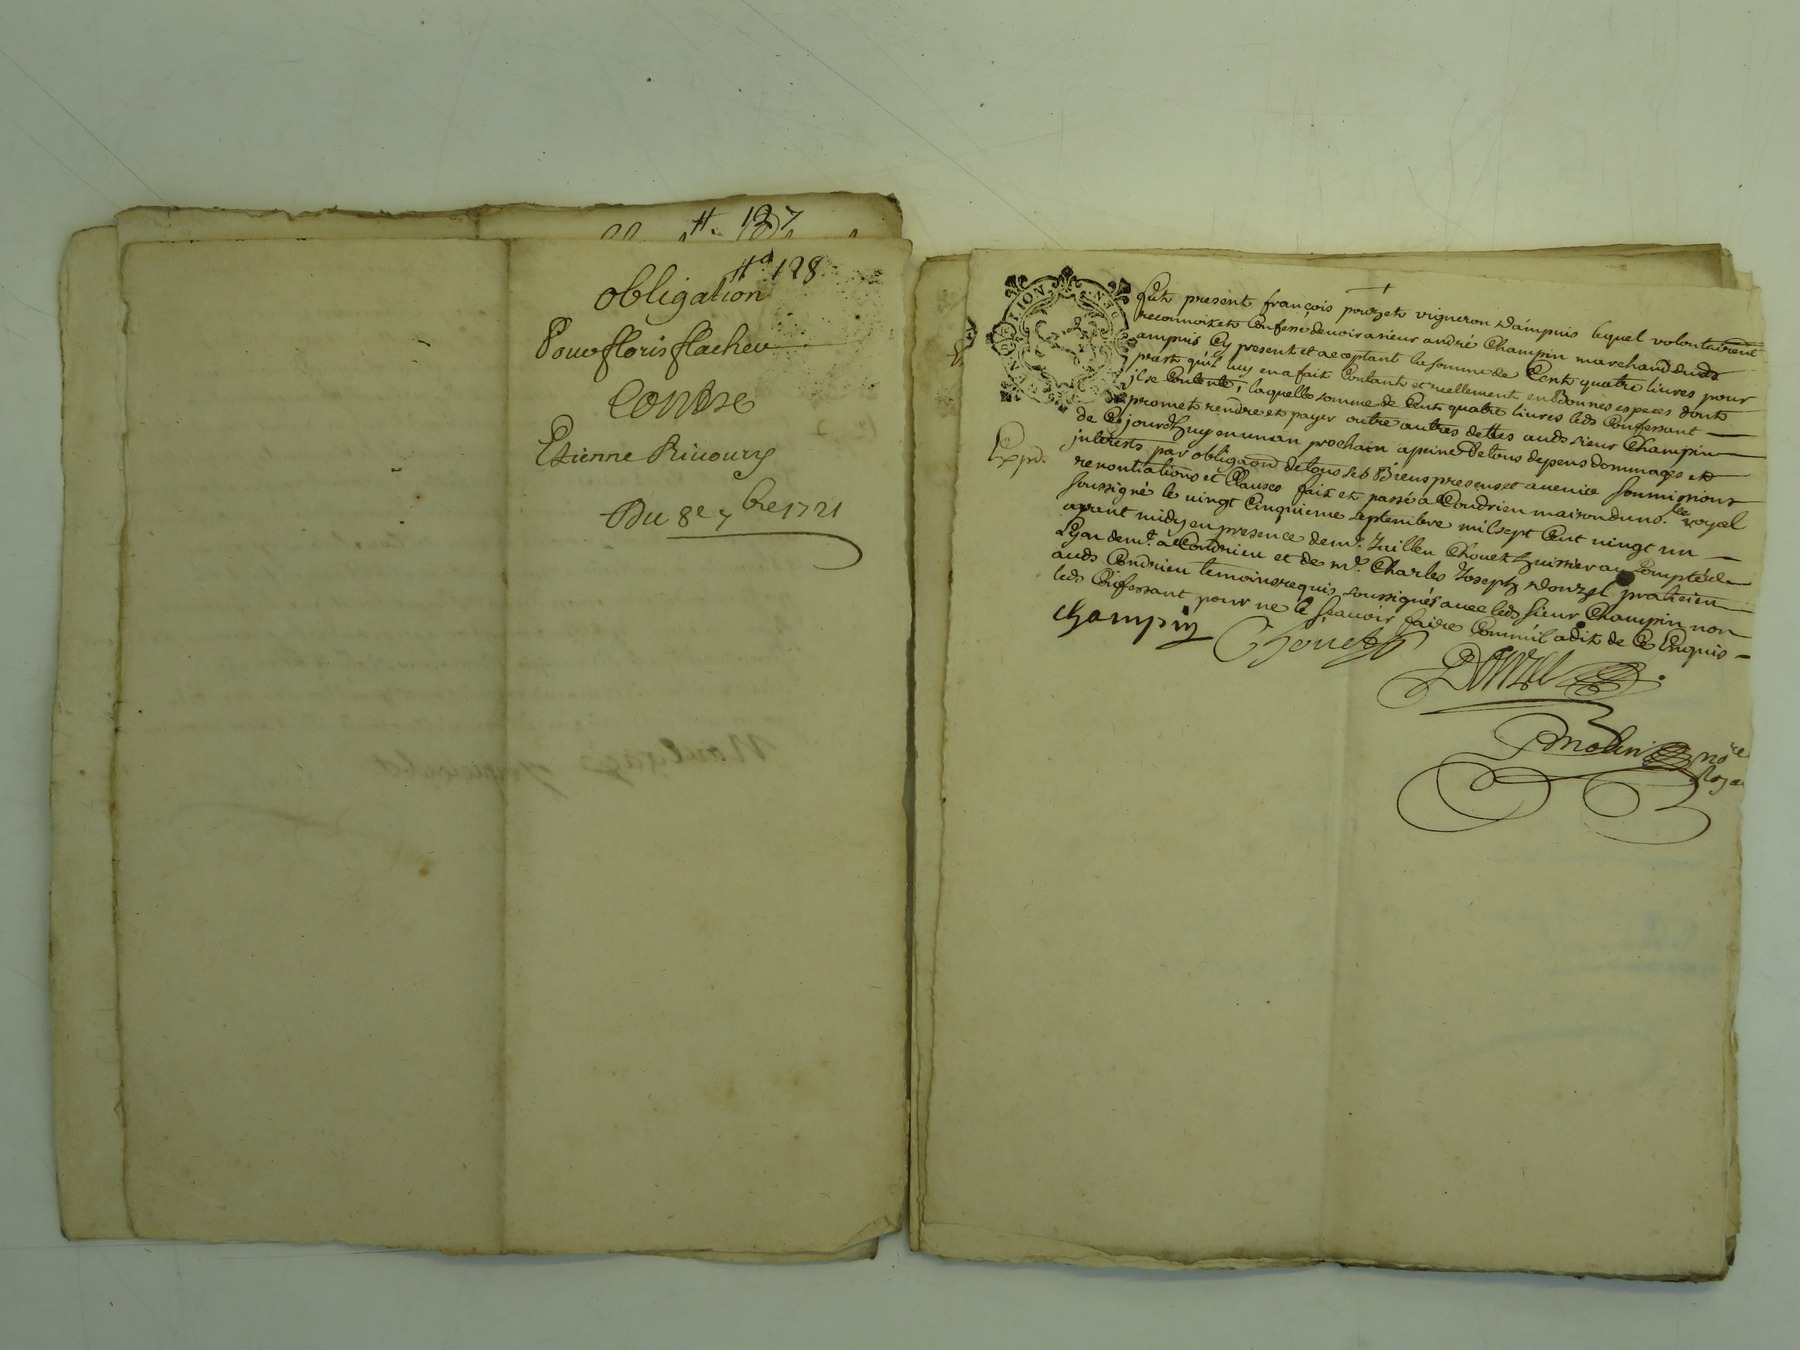 N. 127
N.a 128
obligation
Pour floris flacheu
Contre
Etienne Riuoury
Du 8e 7bre 1721
LION
Expd.
fut present françois pouzet vigneron d'ampuis lequel volontairemt
reconnoit et Confesse deuoir a sieur andré Champin marchand dud
ampuis Cy present et acceptant la somme de Cent quatre liures pour
prest qu'il luy en a fait Contant et reellement en Bonnes especes dont
il se Contente, laquelle somme de Cent quatre liures led Confessant
promet rendre et payer outre autres dettes aud sieur Champin
de Ce jourdhuy en un an prochain a peine de tous depens dommages et
interests par obligaon de tous ses Biens presens et auenir soumissions
renontiations et Clauses fait et passé a Condrieu maison du no.re royal
soussigné le vingt Cinquieme septembre mil sept Cent vingt un
auant midy en presence de me. Guillen Chouet huissier au Compté de
Lyon demt. a Condrieu et de me. Charles Joseph Donzel praticien
aud Condrieu temoins requis soussignés auec led sieur Champin non
led Confessant pour ne le sçauoir faire Comm'il a dit de Ce Enquis
champin Chouet
Donzel
Molin no.re
Roya